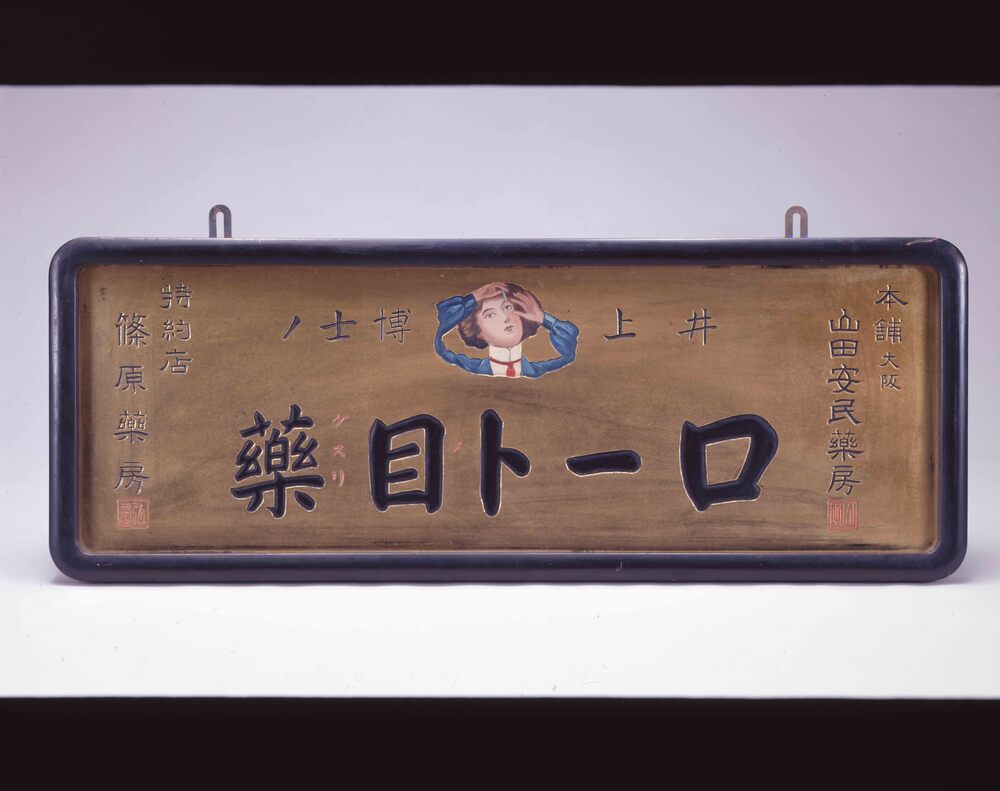 本舗大阪
山田安民藥房
井上博士ノ
ロート目藥
メ
グスリ
特約店
篠原藥房